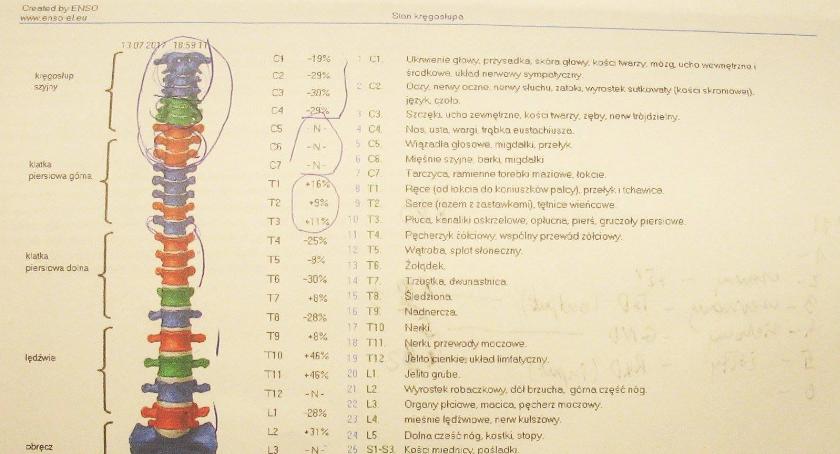 Created by ENSO
www.enso-el.eu
Stan kręgosłupa
13.07.2017 18:59:11
kręgosłup
szyjny
klatka
piersiowa górna
klatka
piersiowa dolna
lędźwie
obręcz
C1 -19%
C2 -29%
C3 -30%
C4 -29%
C5 -N-
C6 -N-
C7 -N-
T1 +16%
T2 +9%
T3 +11%
T4 -25%
T5 -9%
T6 -30%
T7 +8%
T8 -28%
T9 +8%
T10 +46%
T11 +46%
T12 -N-
L1 -28%
L2 +31%
L3 -N-
1 C1. Ukrwienie głowy, przysadka, skóra głowy, kości twarzy, mózg, ucho wewnętrzne i
środkowe, układ nerwowy sympatyczny.
2 C2. Oczy, nerwy oczne, nerwy słuchu, zatoki, wyrostek sutkowaty (kości skroniowej),
język, czoło.
3 C3. Szczęki, ucho zewnętrzne, kości twarzy, zęby, nerw trójdzielny.
4 C4. Nos, usta, wargi, trąbka eustachiusza.
5 C5. Wiązadła głosowe, migdałki, przełyk.
6 C6. Mięśnie szyjne, barki, migdałki
7 C7. Tarczyca, ramienne torebki maziowe, łokcie.
8 T1. Ręce (od łokcia do koniuszków palcy), przełyk i tchawica.
9 T2. Serce (razem z zastawkami), tętnice wieńcowe.
10 T3. Płuca, kanaliki oskrzelowe, opłucna, pierś, gruczoły piersiowe.
11 T4. Pęcherzyk żółciowy, wspólny przewód żółciowy.
12 T5. Wątroba, splot słoneczny.
13 T6. Żołądek.
14 T7. Trzustka, dwunastnica.
15 T8. Śledziona.
16 T9. Nadnercza.
17 T10 Nerki.
18 T11. Nerki, przewody moczowe.
19 T12. Jelito cienkie, układ limfatyczny.
20 L1. Jelito grube.
21 L2 Wyrostek robaczkowy, dół brzucha, górna część nóg.
22 L3. Organy płciowe, macica, pęcherz moczowy.
23 L4. mieśnie lędźwiowe, nerw kulszowy.
24 L5. Dolna cześć nóg, kostki, stopy.
25 S1-S3. Kości miednicy, pośladki.